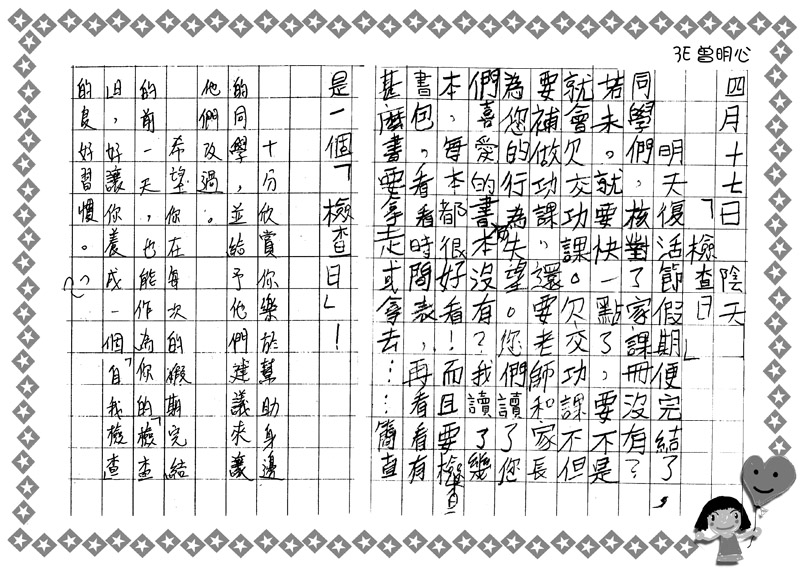 3E 曾明心
四月十七日 陰天
「檢查日」
明天復活節假期便完結了，
同學們，核對了家課冊沒有？
若未。就要快一點了，要不是
就會欠交功課。欠交功課不但
要補做功課，還要老師和家長
為您的行為失望。您們讀了您
們喜愛的書本沒有？我讀了幾
本，每本都很好看！而且要檢查
書包。看看時間表，再看看有
甚麼書要拿走或拿去……簡直
是一個「檢查日」！
十分欣賞你樂於幫助身邊
的同學，並給予他們建議來讓
他們改過。
希望你在每次的假期完結
的前一天，也能作為你的「檢查
日」，好讓你養成一個自我檢查
的良好習慣。